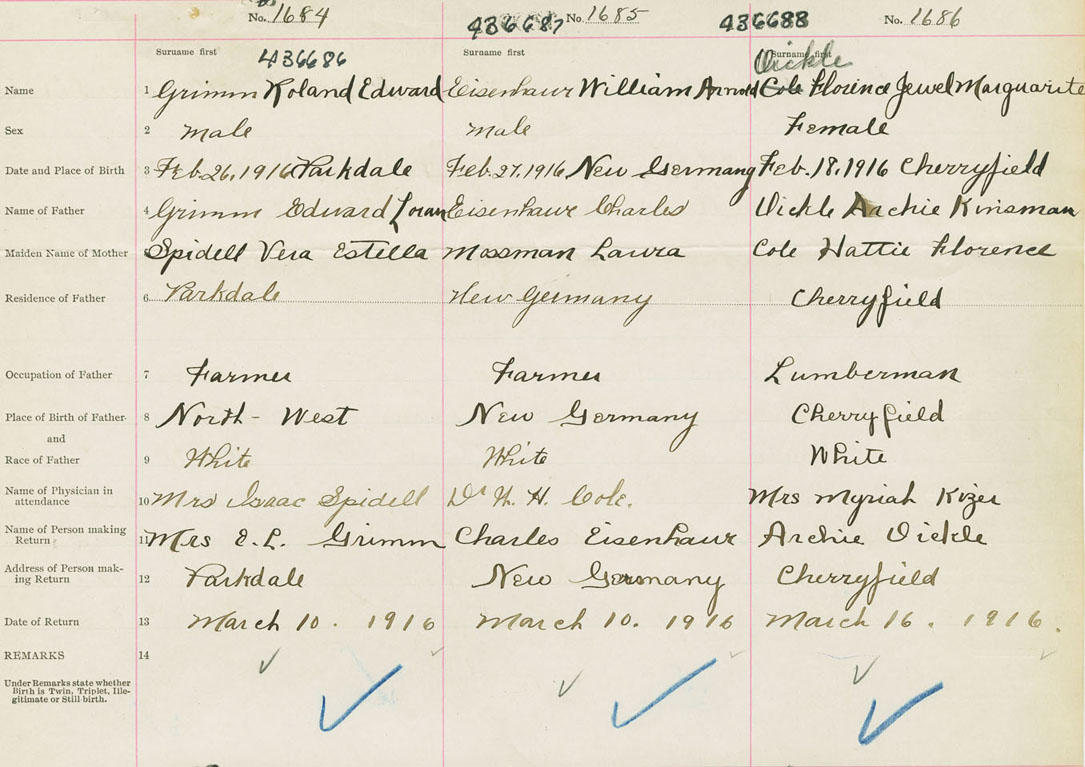 No. 1684 436687 No. 1685 436688 No. 1686
Surname first Surname first Surname first
436686 Vickle
Name 1 Grimm Roland Edward Eisenhaur William Arnold Cole Florence Jewel Marguarite
Sex 2 male male Female
Date and Place of Birth 3 Feb. 26, 1916 Parkdale Feb. 27, 1916, New Germany Feb. 18, 1916 Cherryfield
Name of Father 4 Grimm Edward Loran Eisenhaur Charles Vickle Archie Kinsman
Maiden Name of Mother 5 Spidell Vera Estella Mossman Laura Cole Hattie Florence
Residence of Father 6 Parkdale New Germany Cherryfield
Occupation of Father 7 Farmer Farmer Lumberman
Place of Birth of Father 8 North-West New Germany Cherryfield
and
Race of Father 9 White White White
Name of Physician in
attendance 10 Mrs Isaac Spidell Dr H. Cole. Mrs Myriah Kizer
Name of Person making
Return 11 Mrs E. L. Grimm Charles Eisenhaur Archie Vickle
Address of Person mak-
ing Return 12 Parkdale New Germany Cherryfield
Date of Return 13 March 10. 1916 March 10. 1916 March 16. 1916.
REMARKS 14
Under Remarks state whether
Birth is Twin, Triplet, Ille-
gitimate or Still-birth.